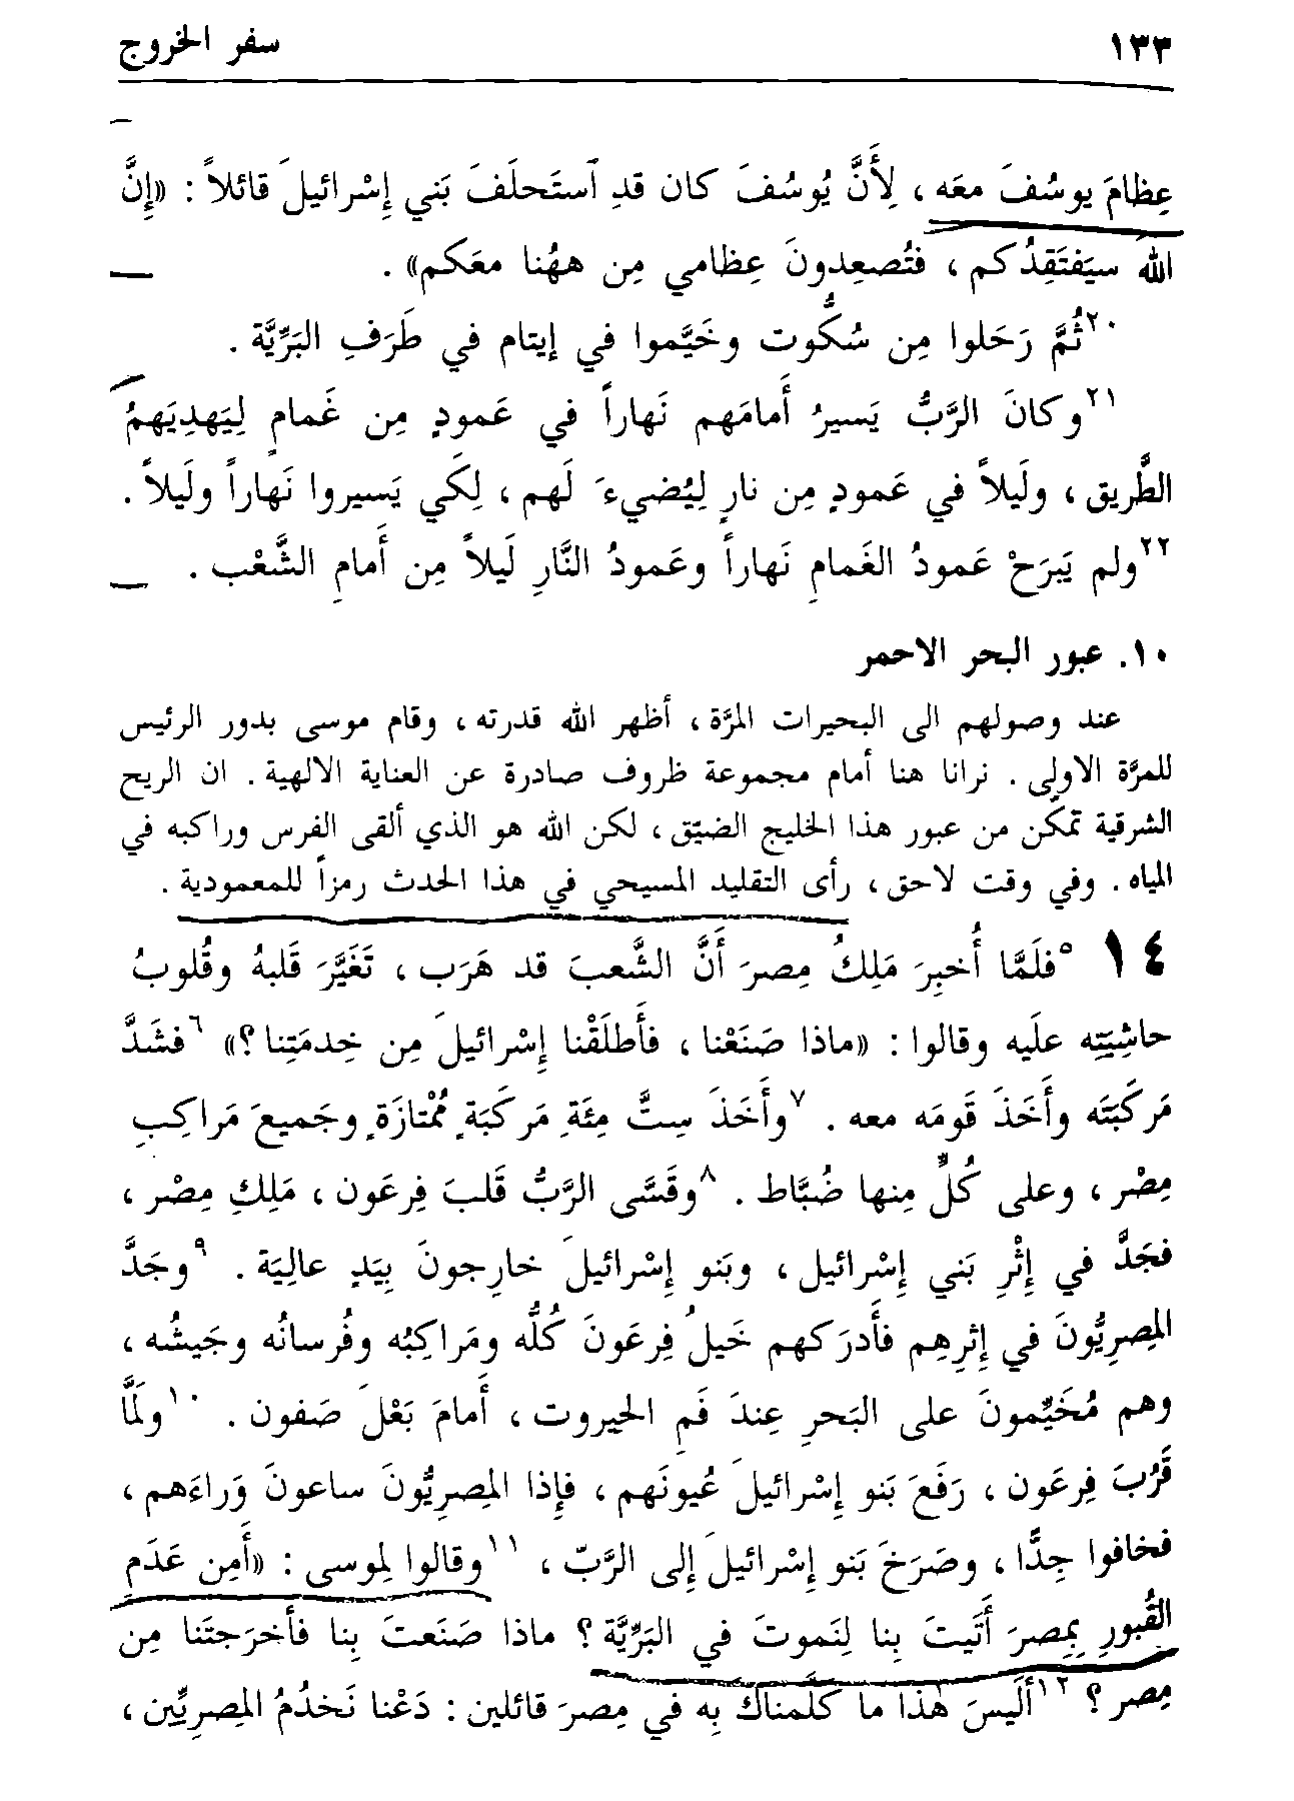 ١٣٣
سفر الخروج
عِظامَ يوسُفَ معَه ، لِأَنَّ يُوسُفَ كان قدِ ٱستَحلَفَ بَني إِسْرائيلَ قائلاً : «إِنَّ
اللهَ سيَفتَقِدُكم ، فتُصعِدونَ عِظامي مِن ههُنا معَكم» .
٢٠ثُمَّ رَحَلوا مِن سُكُّوت وخَيَّموا في إيتام في طَرَفِ البَرِّيَّة .
٢١وكانَ الرَّبُّ يَسيرُ أَمامَهم نَهاراً في عَمودٍ مِن غَمامٍ لِيَهدِيَهمُ
الطَّريق ، ولَيلاً في عَمودٍ مِن نارٍ لِيُضيءَ لَهم ، لِكَي يَسيروا نَهاراً ولَيلاً .
٢٢ولم يَبرَحْ عَمودُ الغَمامِ نَهاراً وعَمودُ النَّارِ لَيلاً مِن أَمامِ الشَّعْب .
١٠. عبور البحر الاحمر
عند وصولهم الى البحيرات المرَّة ، أظهر الله قدرته ، وقام موسى بدور الرئيس
للمرَّة الاولى . نرانا هنا أمام مجموعة ظروف صادرة عن العناية الالهية . ان الريح
الشرقية تمكّن من عبور هذا الخليج الضيّق ، لكن الله هو الذي ألقى الفرس وراكبه في
المياه . وفي وقت لاحق ، رأى التقليد المسيحي في هذا الحدث رمزاً للمعمودية .
١٤ ٥فلَمَّا أُخبِرَ مَلِكُ مِصرَ أَنَّ الشَّعبَ قد هَرَب ، تَغَيَّرَ قَلبهُ وقُلوبُ
حاشِيَتِه علَيه وقالوا : «ماذا صَنَعْنا ، فأَطلَقْنا إِسْرائيلَ مِن خِدمَتِنا ؟» ٦فشَدَّ
مَركَبَتَه وأَخَذَ قَومَه معه . ٧وأَخَذَ سِتَّ مِئَةِ مَركَبَةٍ مُمْتازَةٍ وجَميعَ مَراكِبِ
مِصْر ، وعلى كُلٍّ مِنها ضُبَّاط . ٨وقَسَّى الرَّبُّ قَلبَ فِرعَون ، مَلِكِ مِصْر ،
فجَدَّ في إِثْرِ بَني إِسْرائيل ، وبَنو إِسْرائيلَ خارِجونَ بِيَدٍ عالِيَة . ٩وجَدَّ
المِصرِيُّونَ في إِثرِهِم فأَدرَكهم خَيلُ فِرعَونَ كُلُّه ومَراكِبُه وفُرسانُه وجَيشُه ،
وهم مُخَيِّمونَ على البَحرِ عِندَ فَمِ الحيروت ، أَمامَ بَعْلَ صَفون . ١٠ولَمَّا
قَرُبَ فِرعَون ، رَفَعَ بَنو إِسْرائيلَ عُيونَهم ، فإِذا المِصرِيُّونَ ساعونَ وَراءَهم ،
فخافوا جِدًّا ، وصَرَخَ بَنو إِسْرائيلَ إِلى الرَّبّ ، ١١وقالوا لِموسى : «أَمِن عَدَمِ
القُبورِ بِمِصرَ أَتَيتَ بِنا لِنَموتَ في البَرِّيَّة ؟ ماذا صَنَعتَ بِنا فأَخرَجتَنا مِن
مِصر ؟ ١٢أَلَيسَ هٰذا ما كلَّمناكَ بِه في مِصرَ قائلين : دَعْنا نَخدُمُ المِصرِيِّين ،